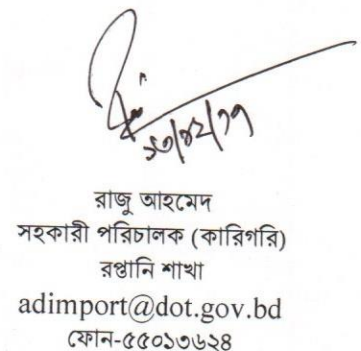 রাজু আহমেদ
সহকারী পরিচালক (কারিগরি)
রপ্তানি শাখা
adimport@dot.gov.bd
ফোন-৫৫০১৩৬২৪